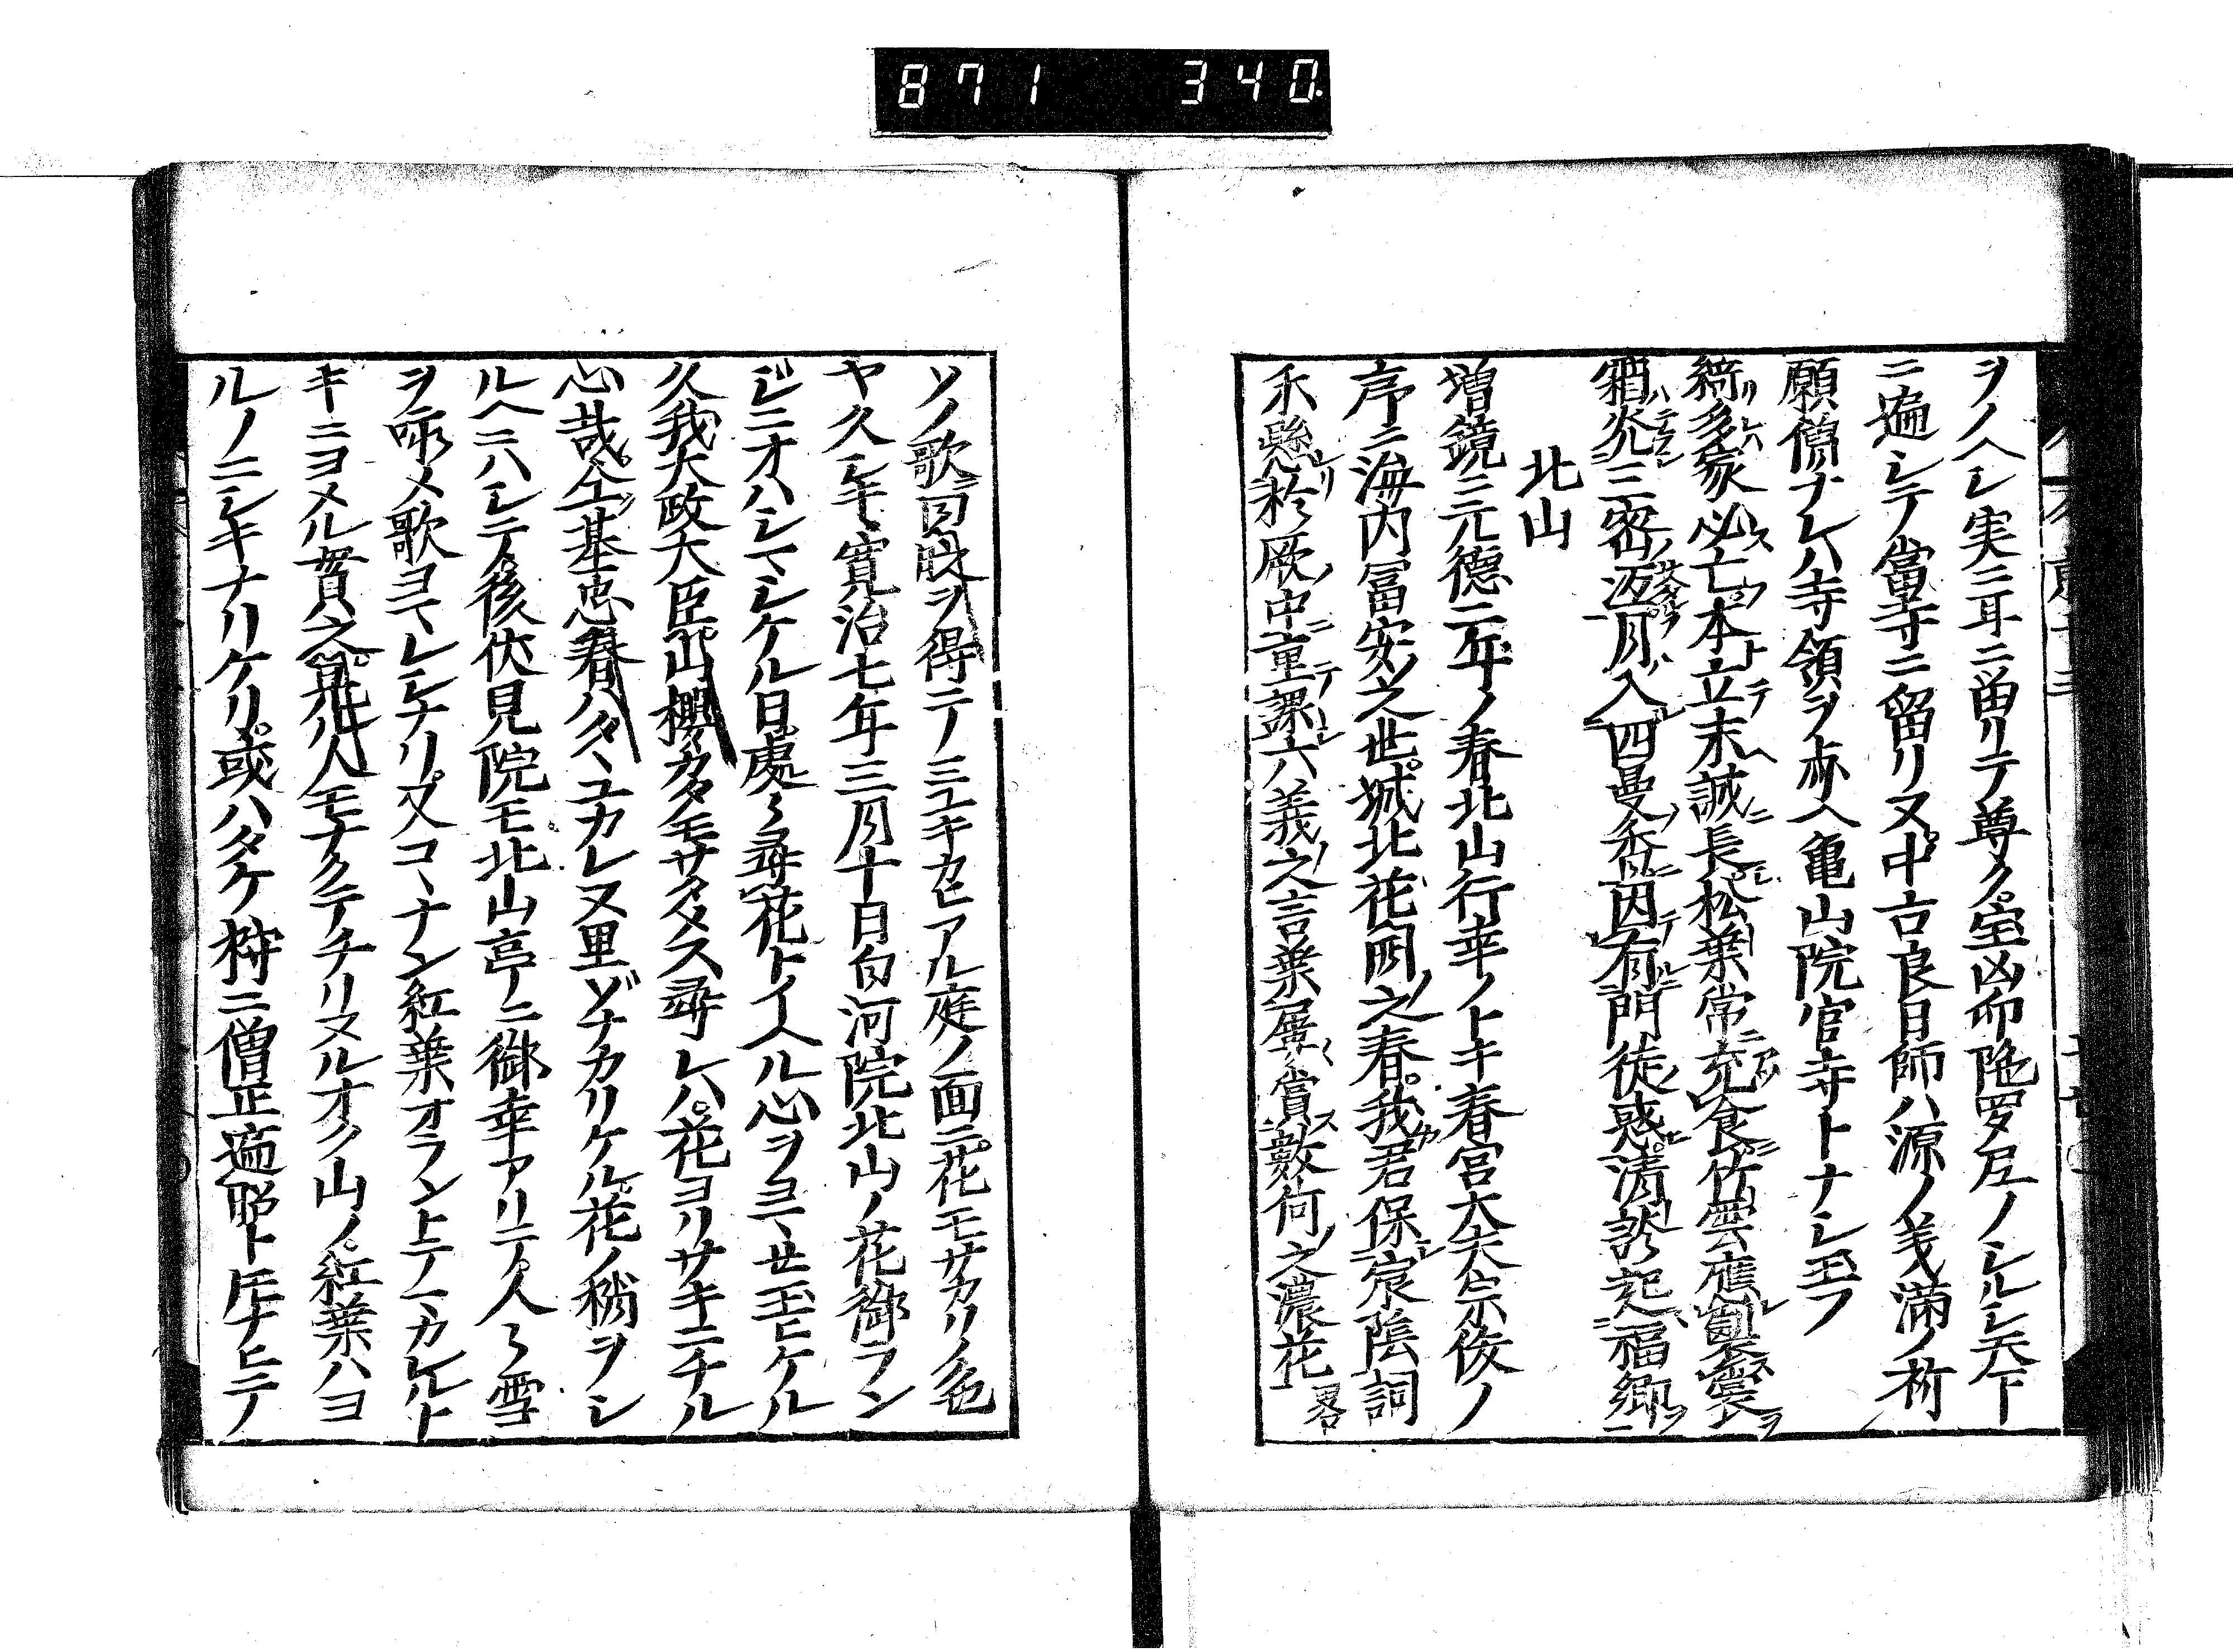 871 340
ヲノヘレ実ニ耳ニ留リテ尊ク宝凶印陁罗尼ノシルシ天下
ニ遍シテ當寺ニ留リ又中古良目師ハ源ノ義満ノ祈
願僧ナレハ寺領ヲ亦入亀山院官寺トナシ玉フ
綺多家必亡本立末誠長松葉常充食竹雲應製裳
霜炎三密返月入四曼香因有門徒惑清談起福郷
北山
増鏡ニ元德二年ノ春北山行幸ノトキ春宮大夫宗俊ノ
序ニ海内冨安之世城北花開之春我君保宸陰詞
禾懸於厥中重課六義之言葉屢賞數何之濃花畧
ソノ歌曰時ヲ得テノミユキカヒアル庭ノ面ニ花モサカリノ色
ヤ久シキ寛治七年三月十日白河院北山ノ花御ラン
ジニオハシマシケル日處々尋花トイヘル心ヲヨマせ玉ヒケル
久我大政大臣山櫻カタモサタメス尋レハ花ヨリサキニチル
心哉全基忠春ハタヽユカレヌ里ゾナカリケル花ノ稍ヲシ
ルヘニハシテ後伏見院モ北山亭ニ御幸アリテ人々雪
ヲ咏メ歌ヨマレシナリ又コヽナン紅葉オラントテマカレルト
キニヨメル貫之見ル人モナクテチリヌルオク山ノ紅葉ハヨ
ルノニシキナリケリ或ハタケ狩ニ僧正遍昭トモナヒテノ